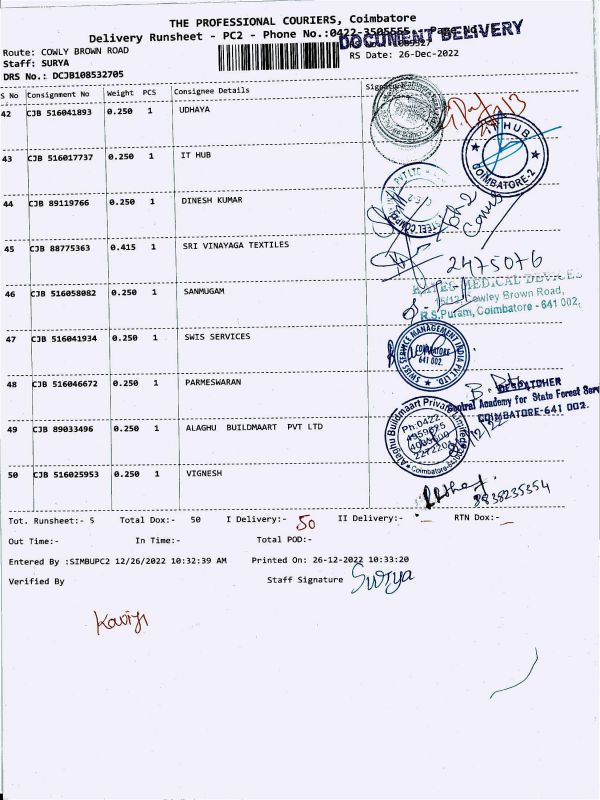 THE PROFESSIONAL COURIERS, Coimbatore
Delivery Runsheet - PC2 - Phone No.:0422-3505555
DOCUMENT DELIVERY
Route: COWLY BROWN ROAD
Staff: SURYA
RS Date: 26-Dec-2022
DRS No.: DCJB108532705
S No Consignment No Weight PCS Consignee Details
42 CJB 516041893 0.250 1 UDHAYA
43 CJB 516017737 0.250 1 IT HUB
IT HUB
COIMBATORE-2
44 CJB 89119766 0.250 1 DINESH KUMAR
45 CJB 88775363 0.415 1 SRI VINAYAGA TEXTILES
2475076
46 CJB 516058082 0.250 1 SANMUGAM
MEDICAL DEVICES
Cowley Brown Road,
R.S.Puram, Coimbatore - 641 002.
47 CJB 516041934 0.250 1 SWIS SERVICES
SWISS SERVICE MANAGEMENT INDIA PVT LTD.
COIMBATORE
641 002.
48 CJB 516046672 0.250 1 PARMESWARAN
DESPATCHER
Central Academy for State Forest Serv
COIMBATORE-641 002.
49 CJB 89033496 0.250 1 ALAGHU BUILDMAART PVT LTD
Alaghu Buildmaart Private Limited
Ph:0422
50 CJB 516025953 0.250 1 VIGNESH
Tot. Runsheet:- 5 Total Dox:- 50 I Delivery:- 50 II Delivery:- - RTN Dox:- -
Out Time:- In Time:- Total POD:-
Entered By :SIMBUPC2 12/26/2022 10:32:39 AM Printed On: 26-12-2022 10:33:20
Verified By Staff Signature Surya